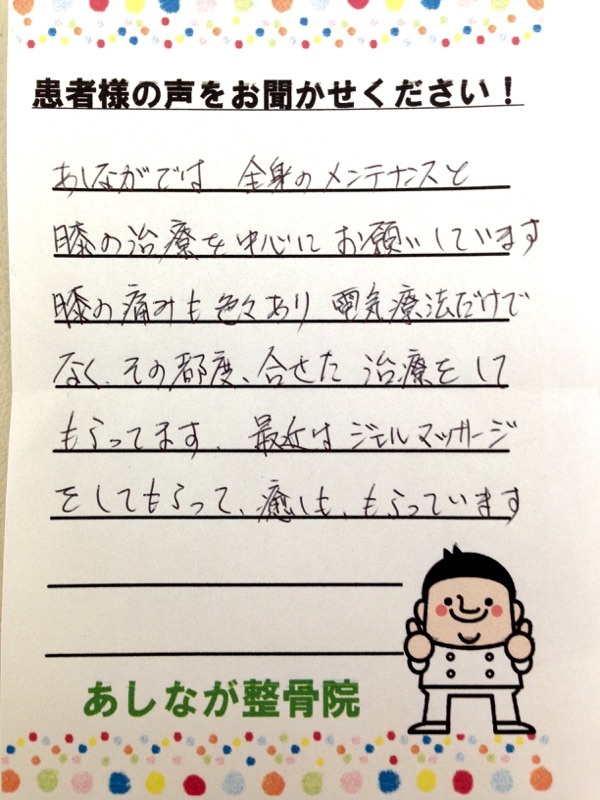 患者様の声をお聞かせください！
あしながでは 全身のメンテナンスと
膝の治療を中心に お願いしています
膝の痛みも色々あり 電気療法だけで
なく、その都度、合せた 治療をして
もらってます、最近は ジェルマッサージ
をしてもらって、癒しも、もらっています
あしなが整骨院